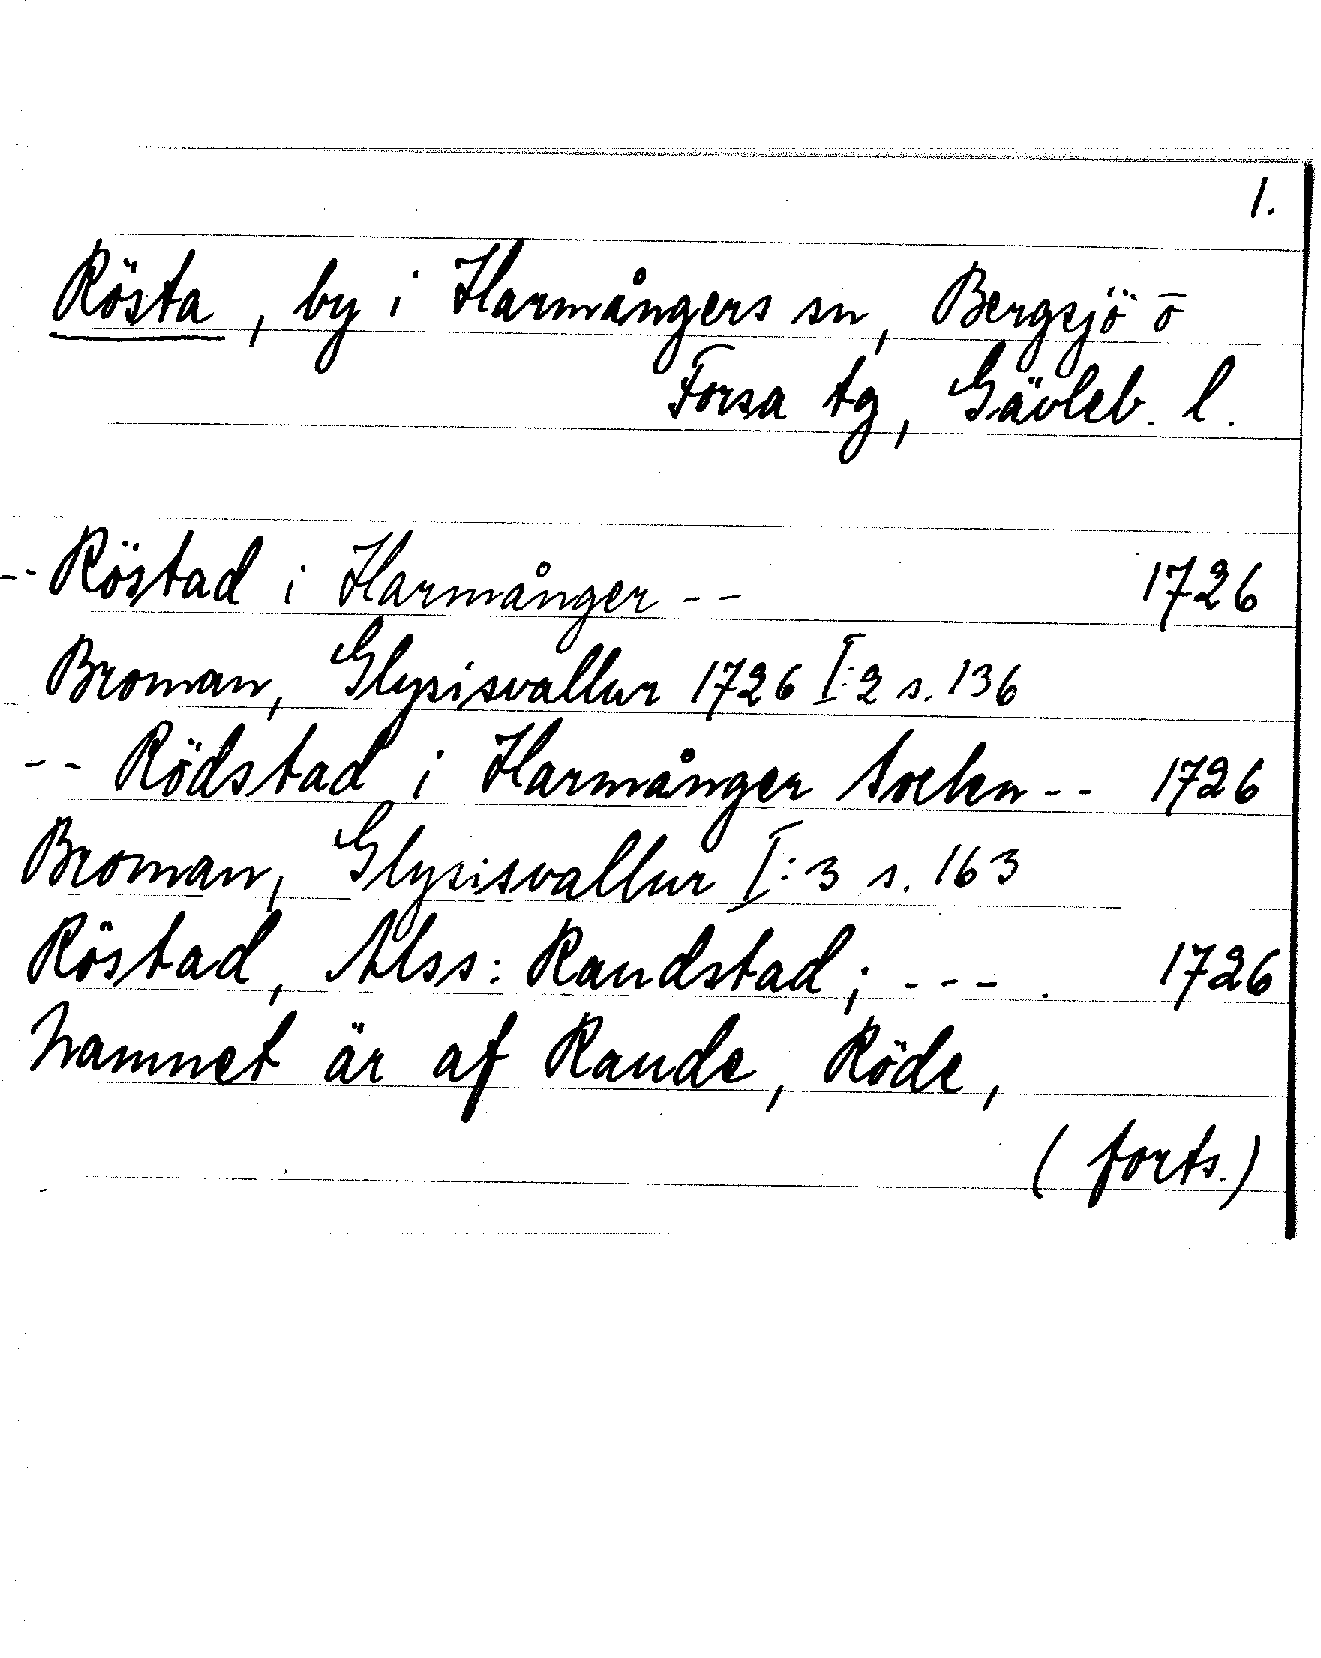 1.
Rösta, by i Harmångers sn, Bergsjö o̅
Forsa tg, Gävleb. l.
-- Röstad i Harmånger -- 1726
Broman, Glysisvallur 1726 I:2 s. 136
-- Rödstad i Harmånger Socken -- 1726
Broman, Glysisvallur I:3 s. 163
Röstad, Alss: Raudstad; --- . 1726
Namnet är af Raude, Röde,
(forts.)